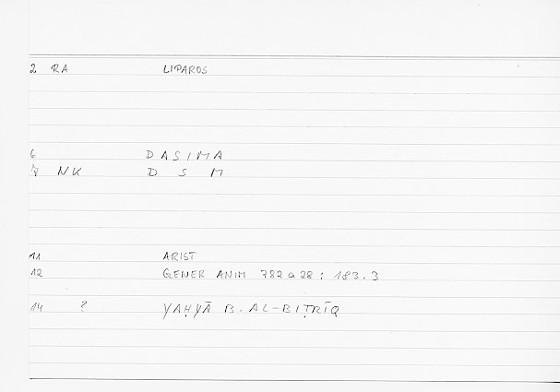 2 RA LIPAROS
6 DASIMA
7 NK D S M
11 ARIST
12 GENER ANIM 782a28; 183.3
14 ? YAḤYĀ B. AL-BIṬRĪQ